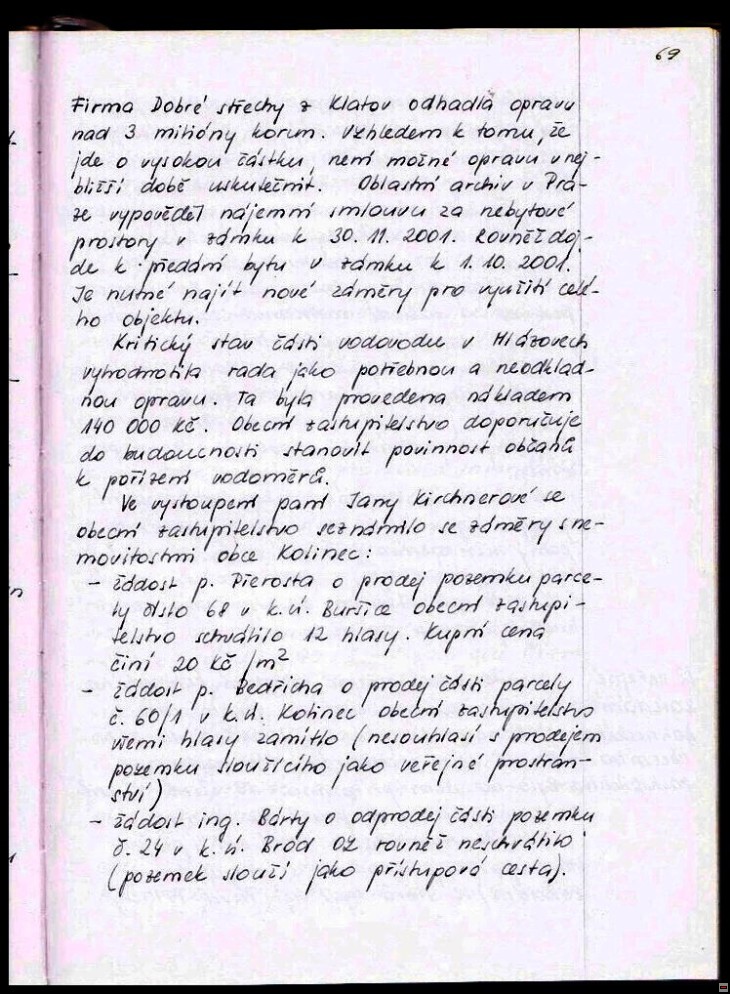 69
Firma Dobré střechy z Klatov odhadla opravu
nad 3 milióny korun. Vzhledem k tomu, že
jde o vysokou částku, není možné opravu v nej-
bližší době uskutečnit. Oblastní archiv v Pra-
ze vypověděl nájemní smlouvu za nebytové
prostory v zámku k 30. 11. 2001. Rovněž doj-
de k předání bytu v zámku k 1. 10. 2001.
Je nutné najít nové záměry pro využití celé-
ho objektu.
Kritický stav části vodovodu v Hlázovech
vyhodnotila rada jako potřebnou a neodklad-
nou opravu. Ta byla provedena nákladem
140 000 Kč. Obecní zastupitelstvo doporučuje
do budoucnosti stanovit povinnost občanů
k pořízení vodoměrů.
Ve vystoupení paní Jany Kirchnerové se
obecní zastupitelstvo seznámilo se záměry s ne-
movitostmi obce Kolinec:
- žádost p. Pierosta o prodej pozemku parce-
ly číslo 68 v k. ú. Buršice obecní zastupi-
telstvo schválilo 12 hlasy. Kupní cena
činí 20 Kč/m²
- žádost p. Bedřicha o prodej části parcely
č. 60/1 v k. ú. Kolinec obecní zastupitelstvo
všemi hlasy zamítlo (nesouhlasí s prodejem
pozemku sloužícího jako veřejné prostran-
ství)
- žádost ing. Bárty o odprodej části pozemku
č. 24 v k. ú. Brod OZ rovněž neschválilo
(pozemek slouží jako přístupová cesta).